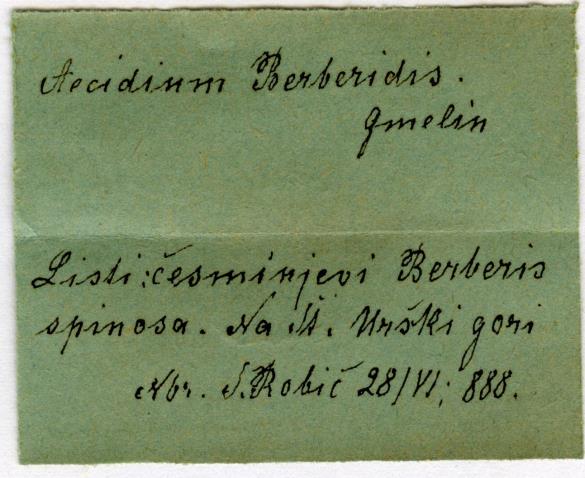 Aecidium Berberidis.
Gmelin
Listi: česminjevi Berberis
spinosa. Na Št. Urški gori
Nbr. S. Robič 28/VI, 888.